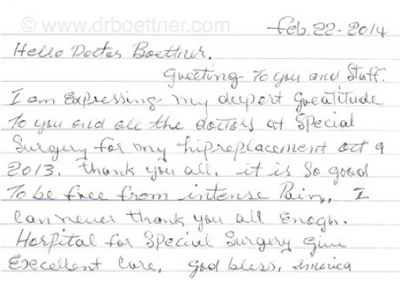 © www.drboettner.com
Feb. 22 - 2014
Hello Doctor Boettner.
Greeting To you and Staff.
I am Expressing my deepest Greatitude
To you and all the doctors at Special
Surgery for my hipreplacement oct 9
2013. Thank you all, it is so good
To be free from intense Pain, I
can never thank you all Enogh.
Hospital for Special Surgery Give
Excellent Care, God bless, America